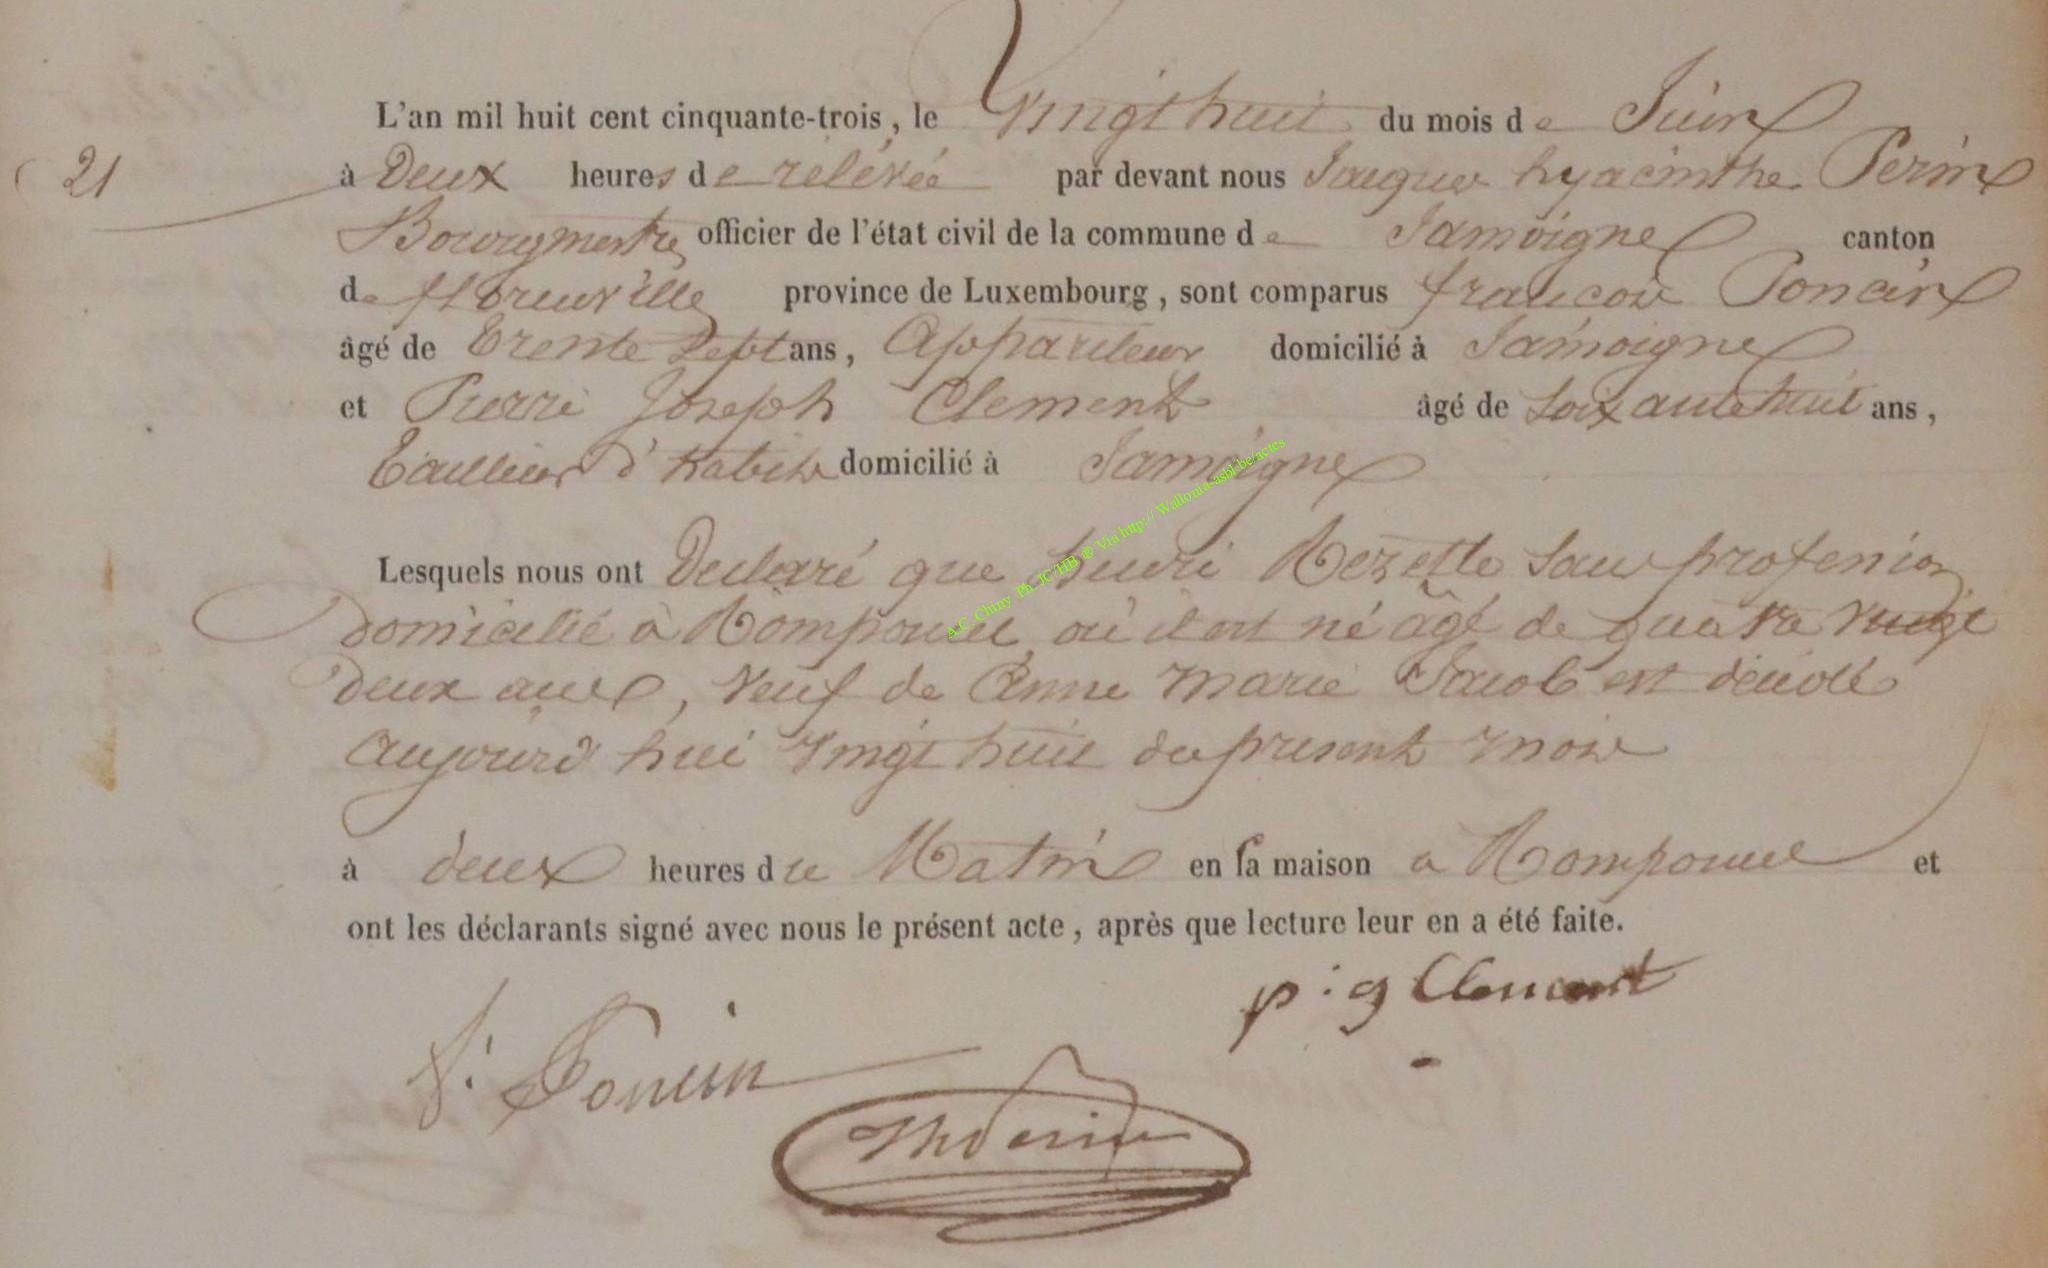 L'an mil huit cent cinquante-trois, le Vingt huit du mois de Juin
21
à Deux heures de rélévée par devant nous Jacques hyacinthe Perin
Bourgmestre officier de l'état civil de la commune de Jamoigne canton
de florenville province de Luxembourg, sont comparus françois Poncin
âgé de Trente Sept ans, Appariteur domicilié à Jamoigne
et Pierre Joseph Clement âgé de Soixante huit ans,
Tailleur d'habits domicilié à Jamoigne
Lesquels nous ont Déclaré que henri Rezette Sans profession
Domicilié à Rompoucel où il est né âgé de quatre vingt
Deux ans, Veuf de Anne Marie Jacob est décédé
Aujourd'hui Vingt huit du present mois
à deux heures du Matin en sa maison a Rompoucel et
ont les déclarants signé avec nous le présent acte, après que lecture leur en a été faite.
p:j Clement
f: Poncin
JhPerin
A.C. Chiny Ph. JC-HB @ Via http:// Wallonia-asbl.be/actes